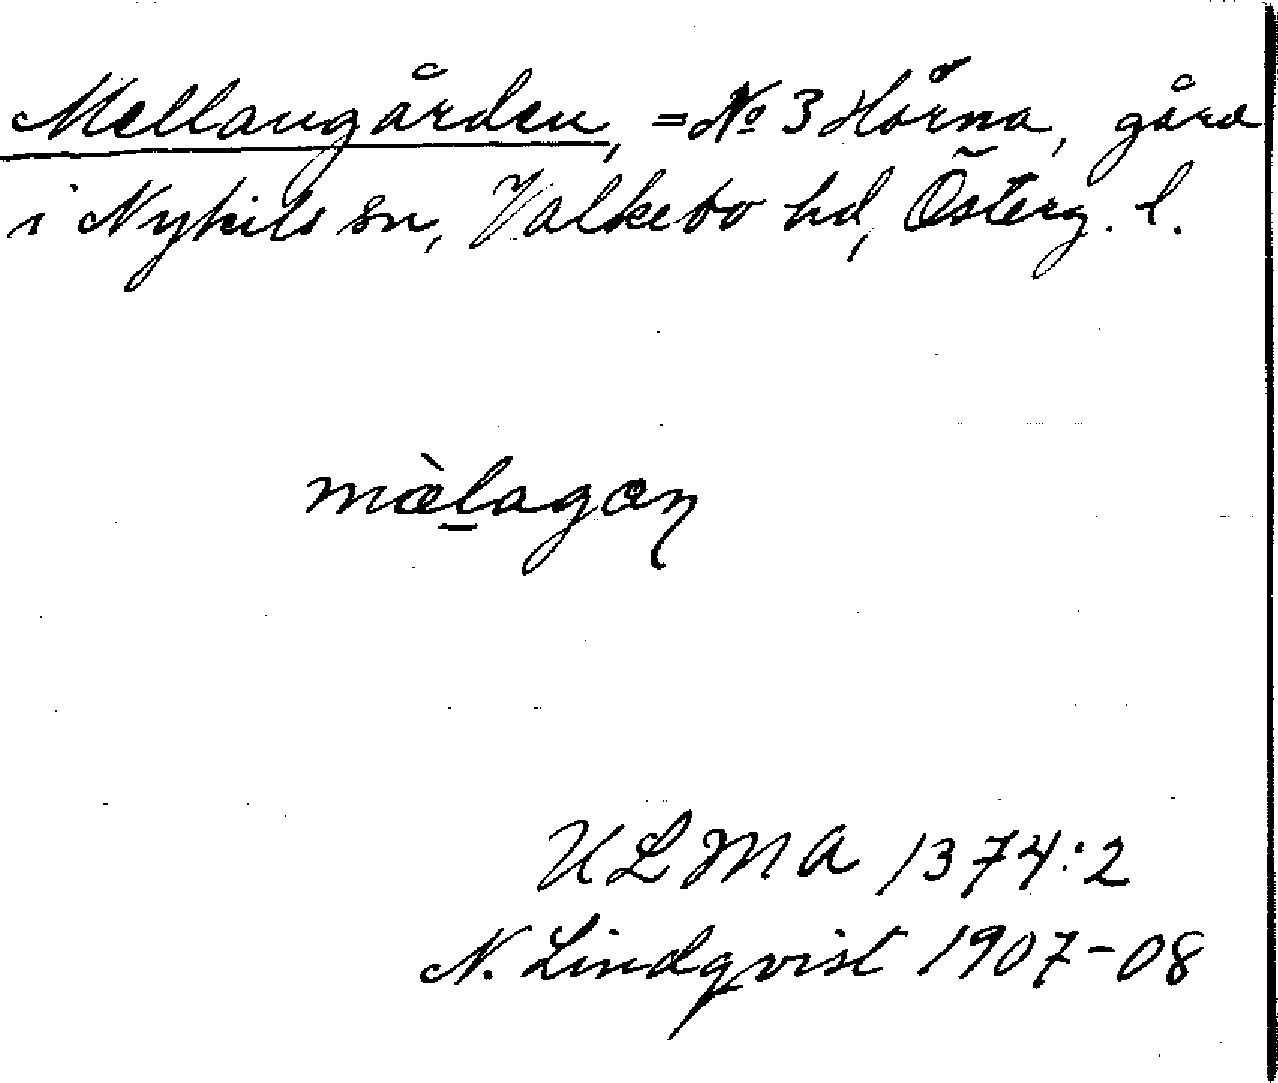 Mellangården, = No 3 Hörna, gård
i Nykils sn, Valkebo hd, Österg. l.
mæ̀l̲agaɳ
ULMA 1374:2
N. Lindqvist 1907-08